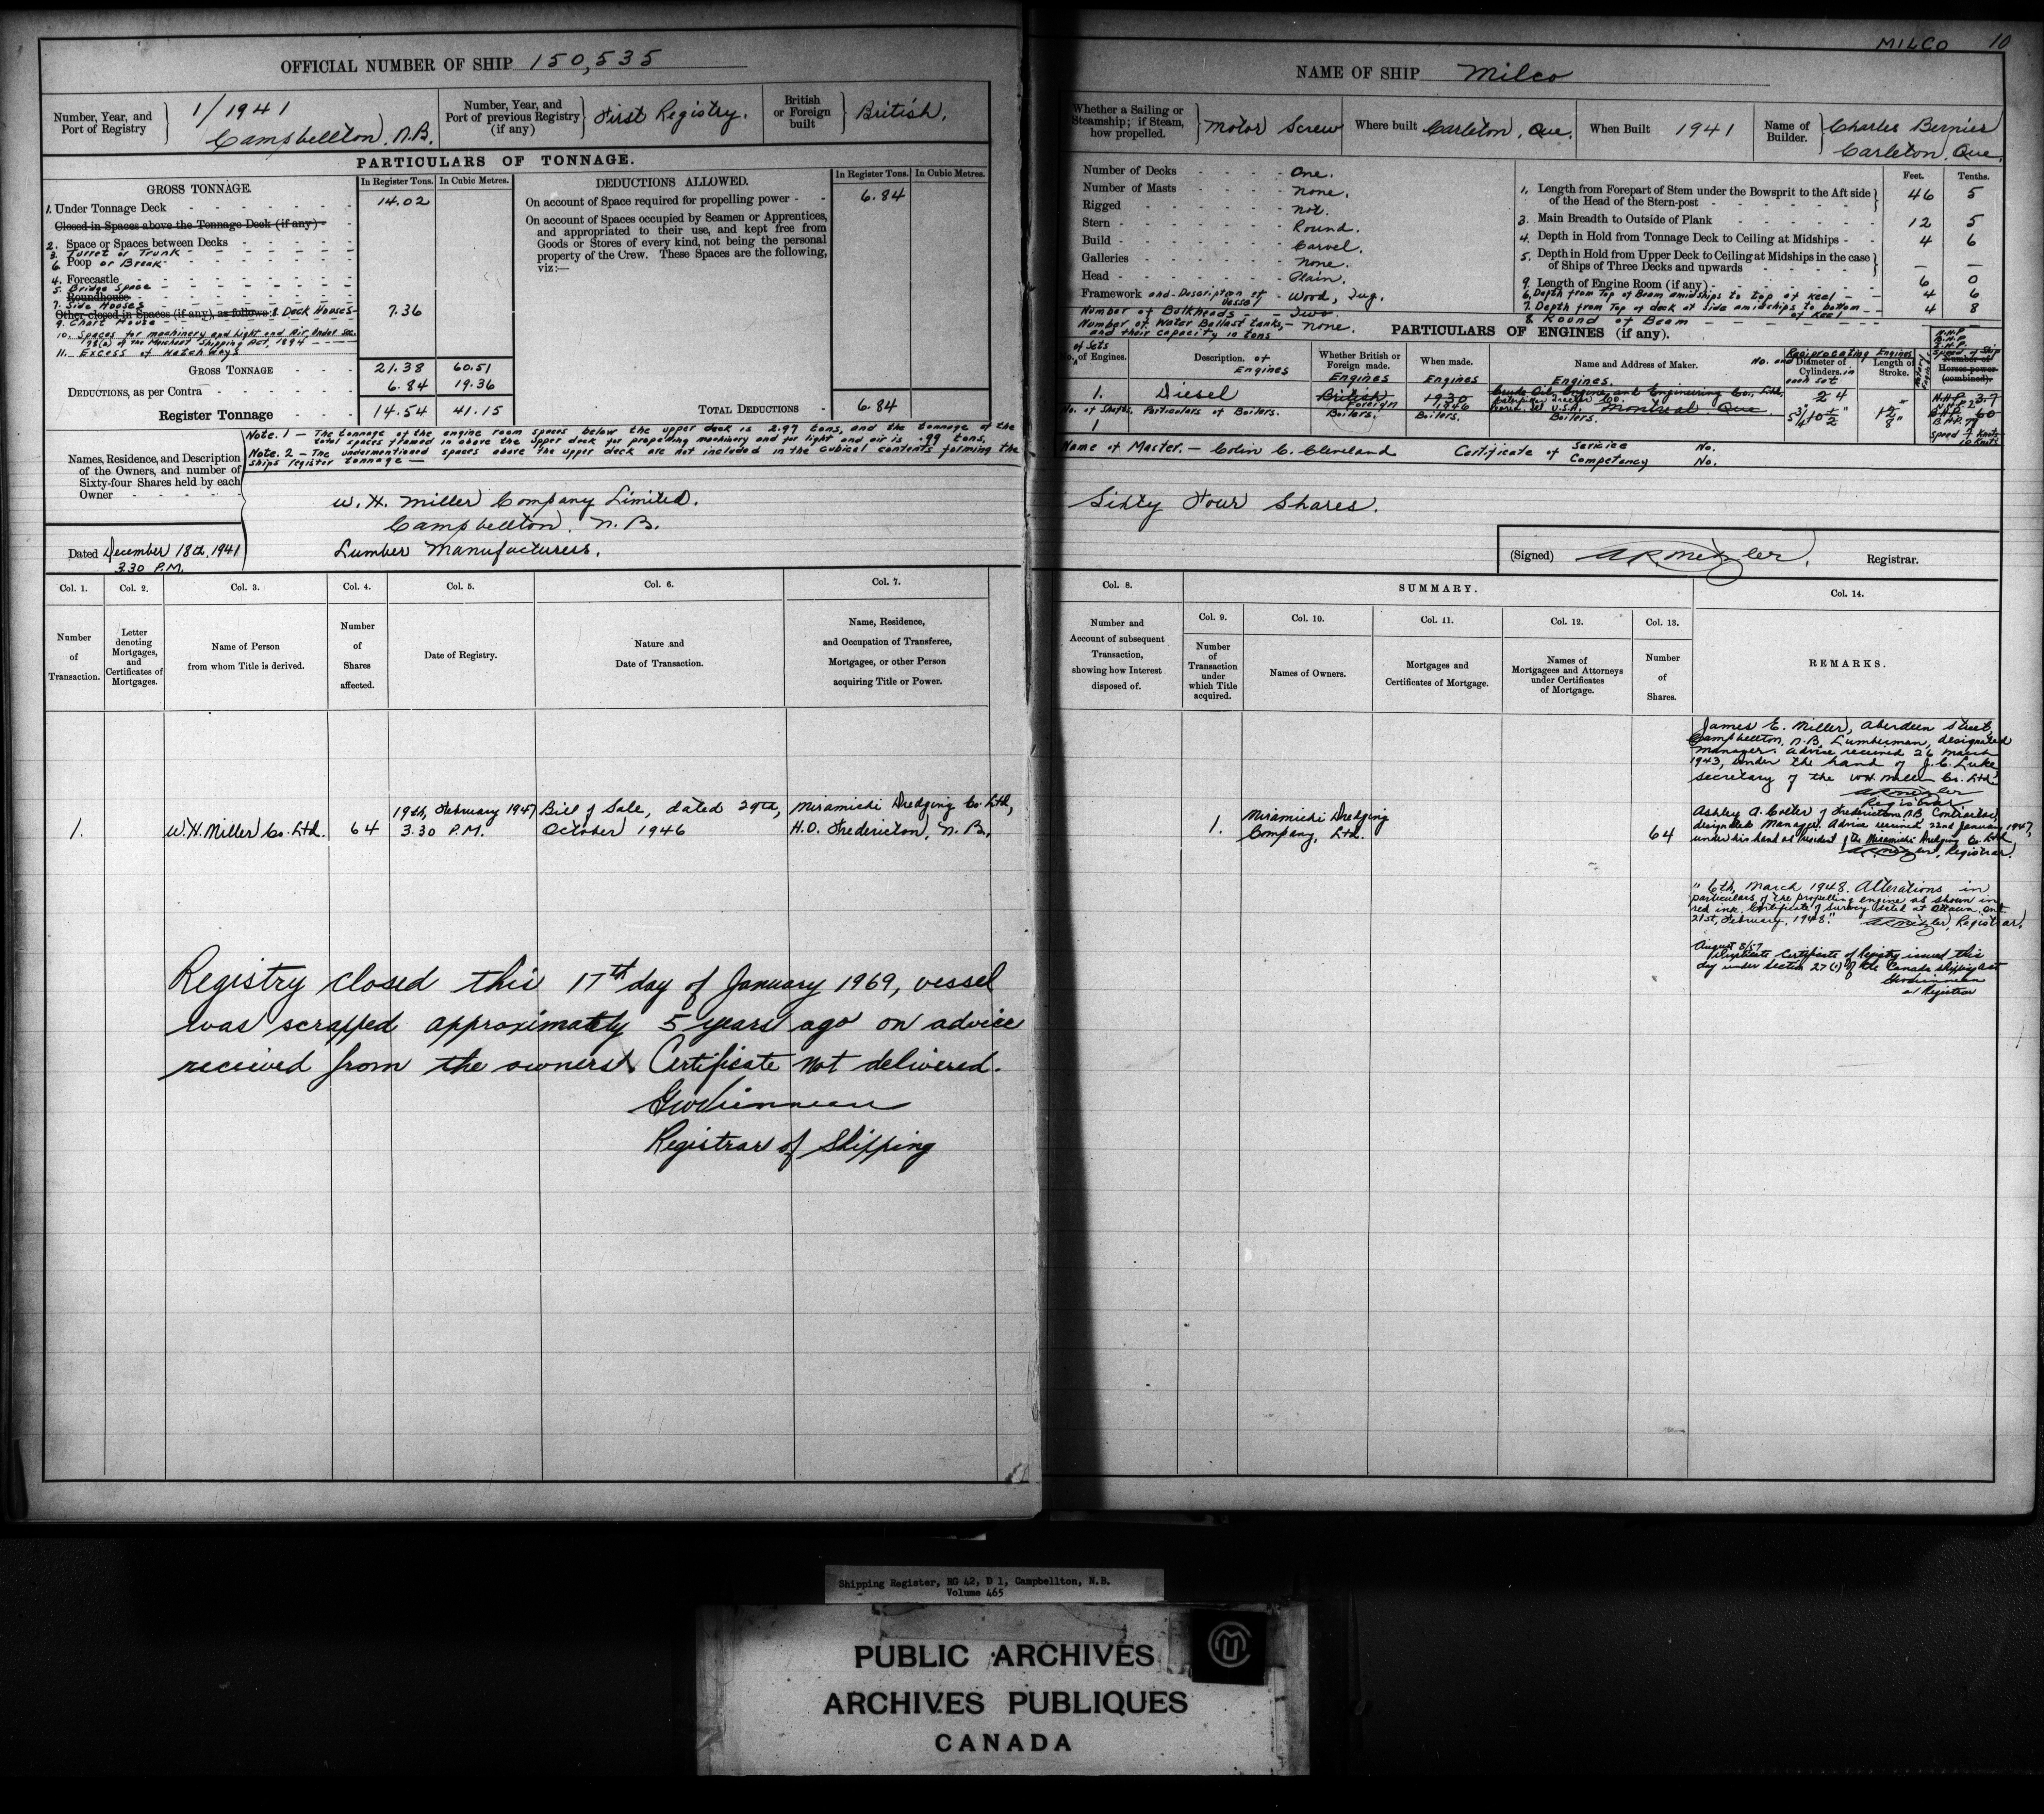 MILCO 10
OFFICIAL NUMBER OF SHIP 150,535
Number, Year, and Port of Registry
1/1941
Campbellton, N.B.
Number, Year, and Port of previous Registry (if any)
First Registry.
British or Foreign built
British.
PARTICULARS OF TONNAGE.
GROSS TONNAGE.
In Register Tons. In Cubic Metres.
1. Under Tonnage Deck 14.02
Closed in Spaces above the Tonnage Deck (if any)
2. Space or Spaces between Decks
3. Turret or Trunk
6. Poop or Break
4. Forecastle
5. Bridge Space
Roundhouse
7. Side Houses
Other closed in Spaces (if any), as follows: 8 Deck Houses 7.36
9. Chart House
10. Spaces for machinery and Light and Air Under Sec. 78(a) of the Merchant Shipping Act, 1894
11. Excess of Hatchways
GROSS TONNAGE 21.38 60.51
DEDUCTIONS, as per Contra 6.84 19.36
Register Tonnage 14.54 41.15
DEDUCTIONS ALLOWED.
In Register Tons. In Cubic Metres.
On account of Space required for propelling power 6.84
On account of Spaces occupied by Seamen or Apprentices,
and appropriated to their use, and kept free from
Goods or Stores of every kind, not being the personal
property of the Crew. These Spaces are the following,
viz:—
TOTAL DEDUCTIONS 6.84
Note. 1 — The tonnage of the engine room spaces below the upper deck is 2.97 tons, and the tonnage of the
total spaces framed in above the upper deck for propelling machinery and for light and air is .99 tons.
Note. 2 — The undermentioned spaces above the upper deck are not included in the cubical contents forming the
ships register tonnage —
Names, Residence, and Description
of the Owners, and number of
Sixty-four Shares held by each
Owner
W. H. Miller Company Limited.
Campbellton, N. B.
Lumber Manufacturers.
Dated December 18th, 1941
3.30 P.M.
Col. 1. Col. 2. Col. 3. Col. 4. Col. 5. Col. 6. Col. 7.
Number of Transaction.
Letter denoting Mortgages, and Certificates of Mortgages.
Name of Person from whom Title is derived.
Number of Shares affected.
Date of Registry.
Nature and Date of Transaction.
Name, Residence, and Occupation of Transferee, Mortgagee, or other Person acquiring Title or Power.
19th, February 1947 Bill of Sale, dated 29th, Miramichi Dredging Co. Ltd,
1. W. H. Miller Co. Ltd. 64 3.30 P.M. October 1946 H.O. Fredericton, N. B.
Registry closed this 17th day of January 1969, vessel
was scrapped approximately 5 years ago on advice
received from the owners. Certificate not delivered.
Registrar of Shipping
NAME OF SHIP Milco
Whether a Sailing or Steamship; if Steam, how propelled.
Motor Screw
Where built Carleton, Que.
When Built 1941
Name of Builder.
Charles Bernier
Carleton, Que.
Number of Decks One.
Number of Masts None.
Rigged Not.
Stern Round.
Build Carvel.
Galleries None.
Head Plain.
Framework and Description of Vessel Wood, Tug.
Number of Bulkheads Two.
Number of Water Ballast tanks, and their capacity in tons None.
Feet. Tenths.
1. Length from Forepart of Stem under the Bowsprit to the Aft side of the Head of the Stern-post 46 5
3. Main Breadth to Outside of Plank 12 5
4. Depth in Hold from Tonnage Deck to Ceiling at Midships 4 6
5. Depth in Hold from Upper Deck to Ceiling at Midships in the case of Ships of Three Decks and upwards — —
9. Length of Engine Room (if any) 6 0
6. Depth from Top of Beam amidships to top of Keel 4 6
7. Depth from Top of deck at Side amidships to bottom of Keel 4 8
8. Round of Beam
PARTICULARS OF ENGINES (if any).
No. of Sets of Engines.
Description. of Engines
Whether British or Foreign made.
When made.
Name and Address of Maker.
Reciprocating Engines
No. and Diameter of Cylinders. in each set
Length of Stroke.
Engines Engines Engines.
1. Diesel British Foreign 1930 1946
Crude Oil Engine and Engineering Co., Ltd. Montreal Que
No. of Shafts. Particulars of Boilers. Boilers. Boilers. Boilers.
1
Name of Master. — Colin C. Cleveland Certificate of Service No.
Competency No.
Sixty Four Shares.
(Signed) Registrar.
Col. 8. SUMMARY. Col. 14.
Col. 9. Col. 10. Col. 11. Col. 12. Col. 13.
Number and Account of subsequent Transaction, showing how Interest disposed of.
Number of Transaction under which Title acquired.
Names of Owners.
Mortgages and Certificates of Mortgage.
Names of Mortgagees and Attorneys under Certificates of Mortgage.
Number of Shares.
REMARKS.
1. Miramichi Dredging Company, Ltd. 64
James E. Miller, Aberdeen Street,
Campbellton, N.B. Lumberman, designated
manager. Advice received 26 March
1943, under the hand of J. C. Luke
secretary of the W.H. Miller Co. Ltd.
Registrar
Ashley A. Colter of Fredericton N.B. Contractor,
designated Manager. Advice received 22nd January 1947,
under his hand as President of the Miramichi Dredging Co. Ltd,
Registrar.
" 6th, March 1948. Alterations in
particulars of the propelling engine as shown in
red ink. Certificate of Survey dated at Ottawa Ont.
21st, February, 1948." Registrar.
August 8/57
Duplicate Certificate of Registry issued this
day under Section 27(1) of the Canada Shipping Act
Registrar
Shipping Register, RG 42, D 1, Campbellton, N.B.
Volume 465
PUBLIC ARCHIVES
ARCHIVES PUBLIQUES
CANADA